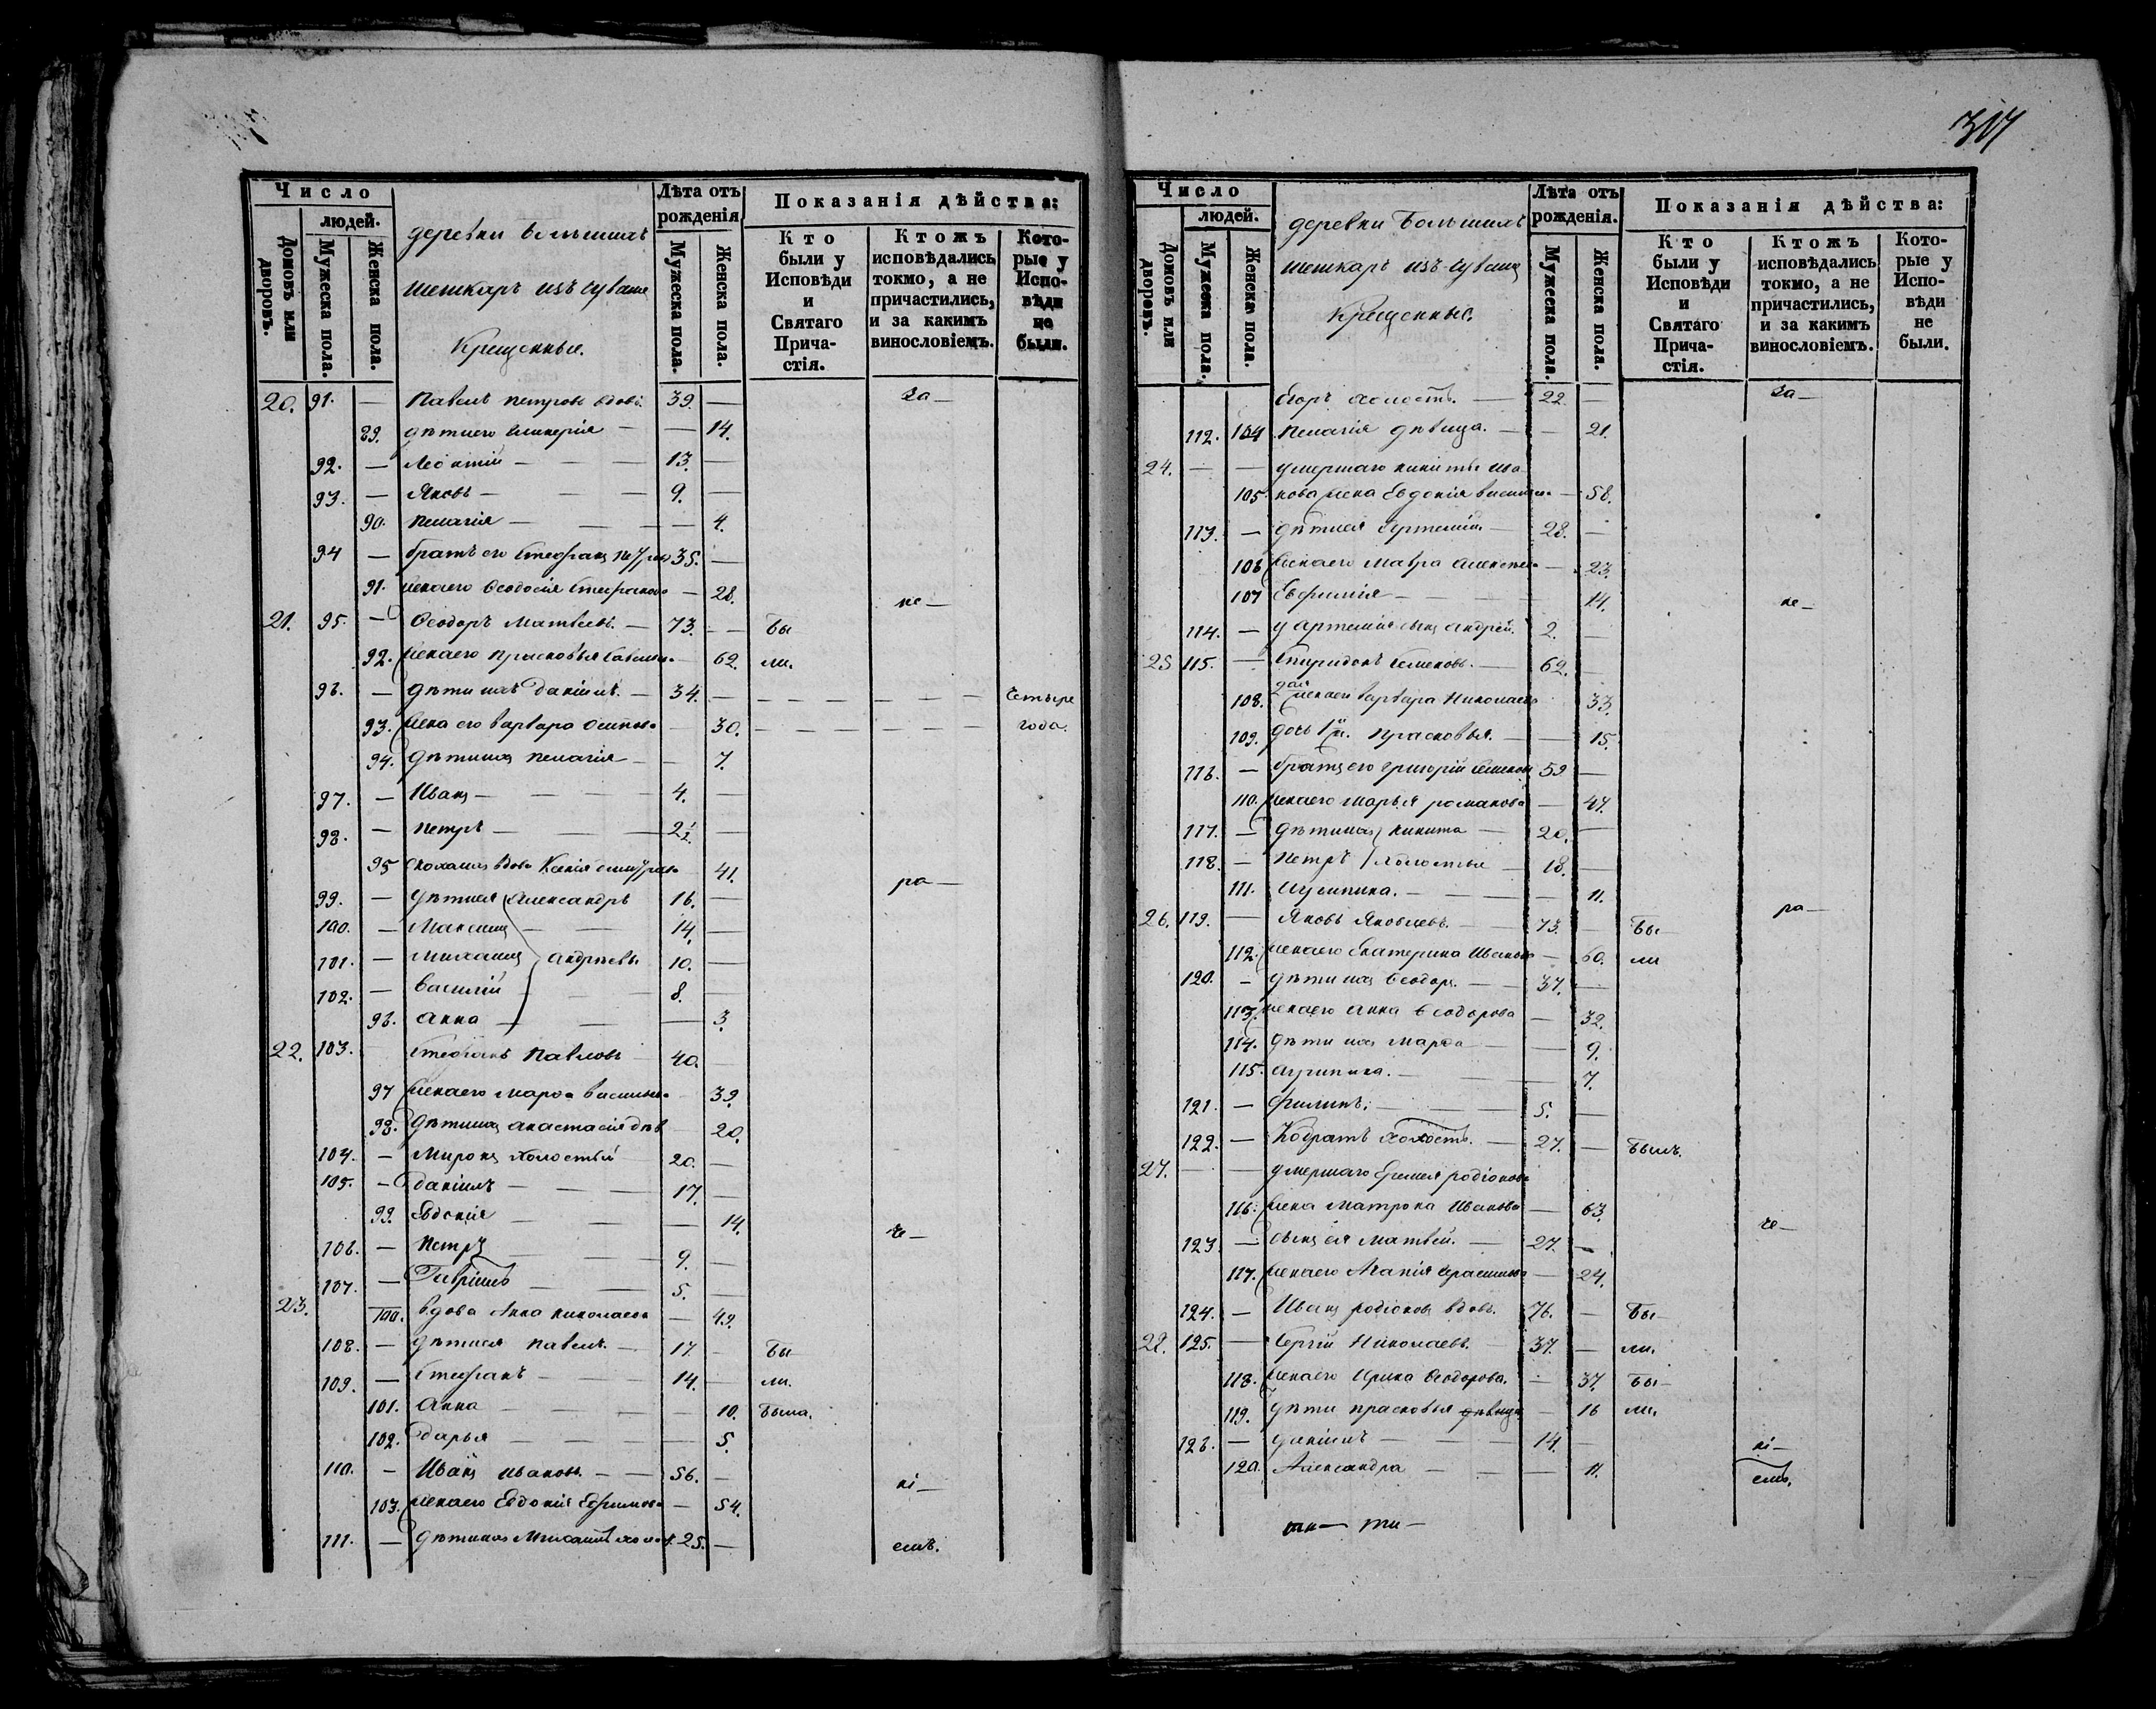 307
Число
людей.
Домовъ или дворовъ.
Мужеска пола.
Женска пола.
деревни Большихъ
шешкаръ изъ чувашъ
Крещенные.
Лѣта отъ рожденія
Мужеска пола.
Женска пола.
Показанія дѣйства:
Кто были у Исповѣди и Святаго Причастія.
Ктожъ исповѣдались токмо, а не причастились, и за какимъ винословіемъ.
Которые у Исповѣди не были.
20. 91. — Павелъ Петровъ вдовъ. 39. — За —
89. дѣтиего Гликерія — — 14.
92. — Леонтій — — — 13. —
93. — Яковъ — — — 9. —
90. Пелагія — — — 4.
94 — братъ его Стефанъ Петровъ 35. —
91. женаего Ѳеодосія Стефанова — 28. не —
21. 95. — Ѳеодоръ Матвеевъ. — 73. — Бы
92. женаего Прасковья Савельева 62. ли.
96. — дѣти ихъ Даніилъ. — 34. — — — — — — — Четыре
93. жена его Варвара Осипова 30. — — — — — — года.
94. дѣтиихъ Пелагія — — 7.
97. — Иванъ — — — 4. —
98. — Петръ — — — 2½ —
95 сноха ихъ вдова Ксенія Димитріева 41. ра —
99. — дѣтиея Александръ 16. —
100. — Максимъ — — 14. —
101. — Михаилъ Андреевы 10. —
102. — Василій — — 8. —
96. Анна — — — 3.
22. 103. Стефанъ Павловъ 40. —
97 женаего Марѳа Васильева 39.
98. дѣтиихъ Анастасія дѣв 20.
104. — Миронъ холостый 20. —
105. — Даніилъ — — — 17. —
99. Евдокія — — — 14. че —
106. — Петръ — — 9. —
107. — Гавріилъ — — 5. —
23. 100. вдова Анна Николаева — 49.
108. — дѣтиея Павелъ. — 17 — Бы
109. — Стефанъ — — 14. — ли.
101. Анна — — — 10. Была.
102. Дарья — — — 5.
110. — Иванъ Ивановъ. — — 56. — ні —
103. женаего Евдокія Ефимова — 54.
111. — дѣтиихъ Михаилъ холост. 25. — емъ.
Число
людей.
Домовъ или дворовъ.
Мужеска пола.
Женска пола.
деревни Большихъ
шешкаръ изъ чувашъ
Крещенные.
Лѣта отъ рожденія.
Мужеска пола.
Женска пола.
Показанія дѣйства:
Кто были у Исповѣди и Святаго Причастія.
Ктожъ исповѣдались токмо, а не причастились, и за какимъ винословіемъ.
Которые у Исповѣди не были.
112. Егоръ холостъ. — 22. — За —
104 Пелагія дѣвица. — — 21.
24. — — умершаго Никиты Ива-
105. нова жена Евдокія Васильева — 58.
113. — дѣтиея Артемій — 28. —
106 женаего Мавра Алексѣева — 23.
107 Евфимія — — — 14. не —
114. — у Артемія сынъ Андрей. 2. —
25 115. — Спиридонъ Семеновъ. — 62. —
108. 2ая женаего Варвара Николаева 33.
109. дочь 1й. Прасковья. — — 15.
116. — братъего Григорій Семеновъ 59 —
110. женаего Марья Романова — 47.
117. — дѣтиихъ Никита — 20. —
118. — Петръ холостые — 18. —
111. Агрипина. — — — 11.
26. 119. — Яковъ Яковлевъ. — 73. — Бы — ра —
112. женаего Екатерина Иванова — 60. ли
120. — дѣти ихъ Ѳеодоръ. — 37. —
113. женаего Анна Ѳеодорова — 32.
114. дѣти ихъ Марѳа — — 9.
115. Агрипина. — — — 7.
121. — Филипъ. — — 5. —
122. — Кодратъ холостъ. — 27. — Былъ.
27. — — умершаго Еремея Родіонова
116. жена Матрона Иванова — 63. че —
123. — сынъ ея Матвей. — 27. —
117. женаего Агапія Герасимова — 24.
124. — Иванъ Родіоновъ вдовъ. 76. — Бы —
28. 125. — Сергій Николаевъ. 37. — ли.
118. женаего Ирина Ѳеодорова. — 37. Бы —
119. дѣти Прасковья дѣвица — 16 ли.
126. — Даніилъ — — 14. — ні —
120. Александра — — — 11. емъ.